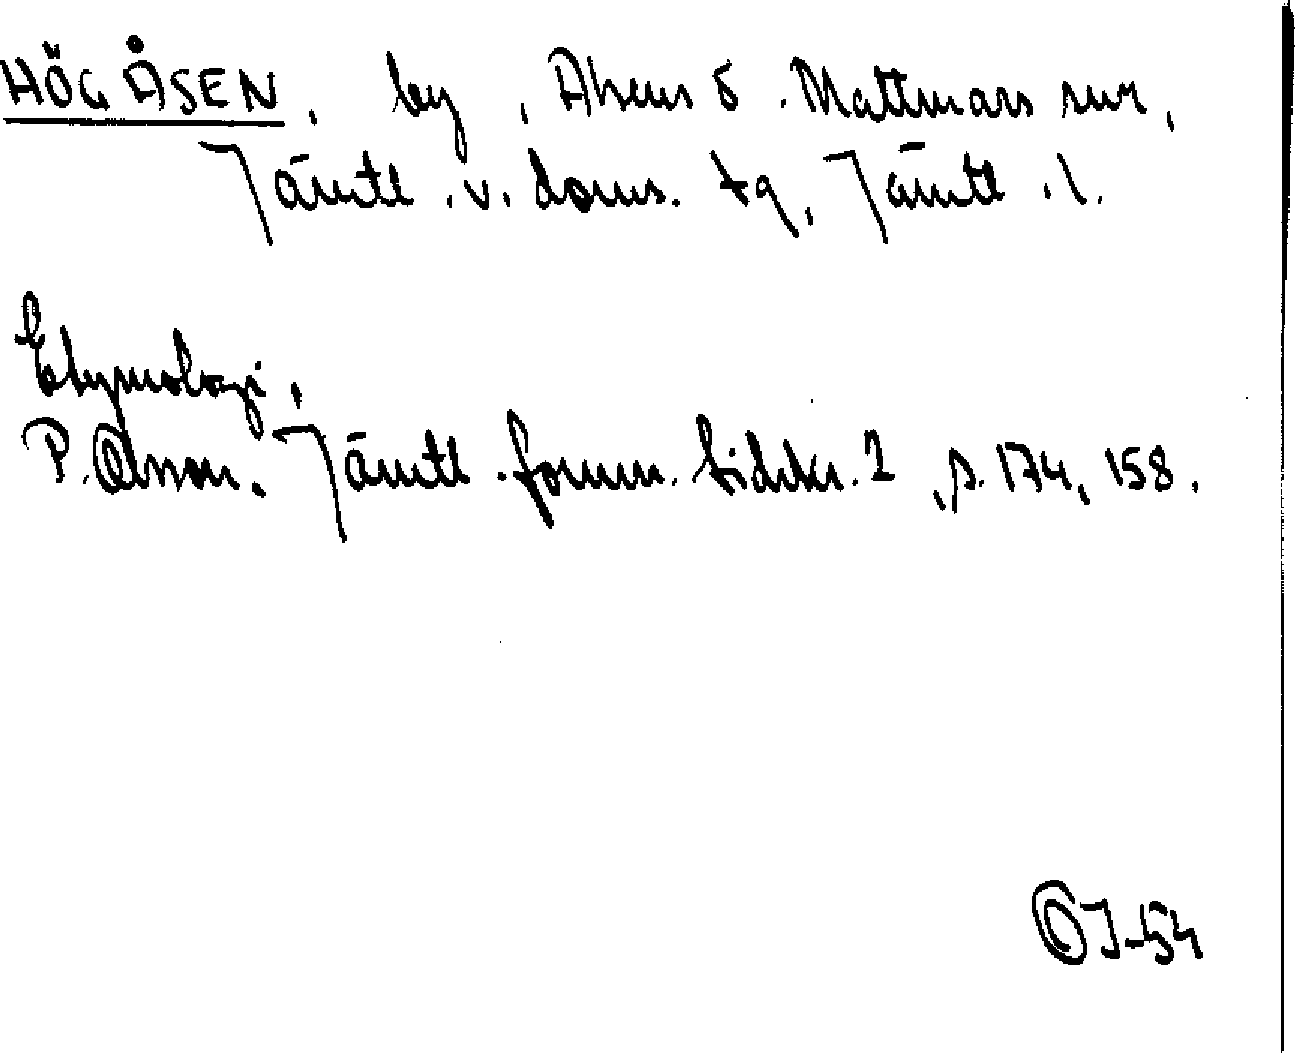 HÖGÅSEN, by, Alsens o. Mattmars snr,
Jämtl. v. doms. tg, Jämtl. l.
Etymologi.
P. Olsson. Jämtl. fornm. tidskr. 2, s. 174, 158.
OJ-54